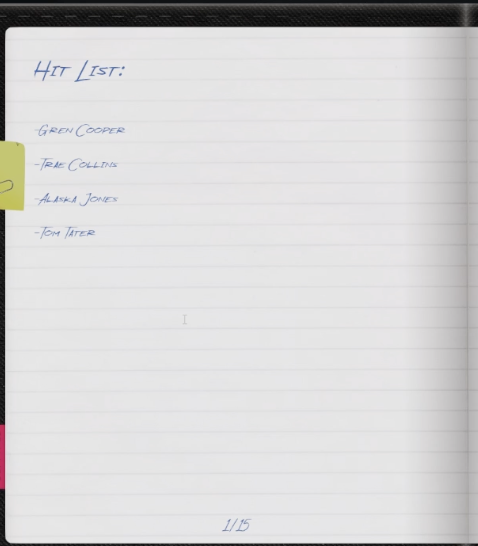 Hit List:
-Gren Cooper
-Trae Collins
-Alaska Jones
-Tom Tater
1/15